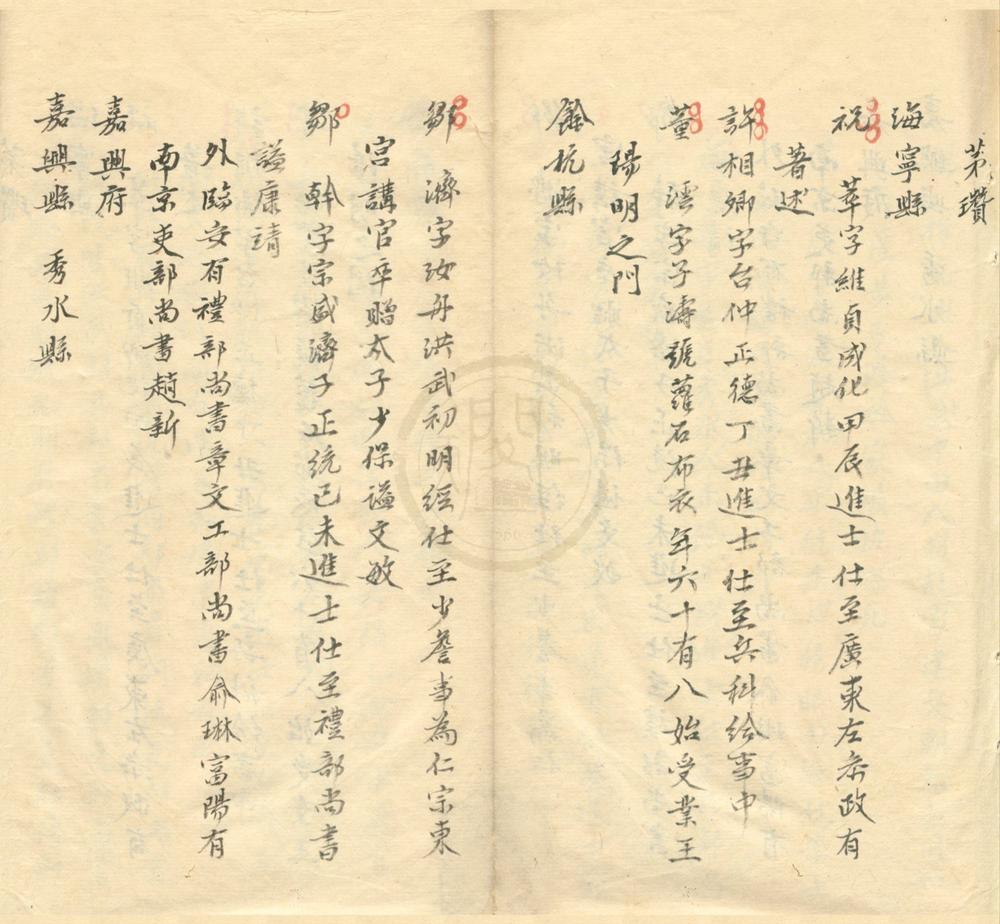 茅瓚
海寧縣
祝 萃字維貞成化甲辰進士仕至廣東左叅政有
著述
許相卿字台仲正德丁丑進士仕至兵科給事中
董 澐字子濤號蘿石布衣年六十有八始受業王
陽明之門
餘杭縣
鄒 濟字汝舟洪武初明經仕至少詹事為仁宗東
宮講官卒贈太子少保謚文敏
鄒 幹字宗盛濟子正統己未進士仕至禮部尚書
謚康靖
外臨安有禮部尚書章文工部尚書俞琳富陽有
南京吏部尚書趙新
嘉興府
嘉興縣 秀水縣